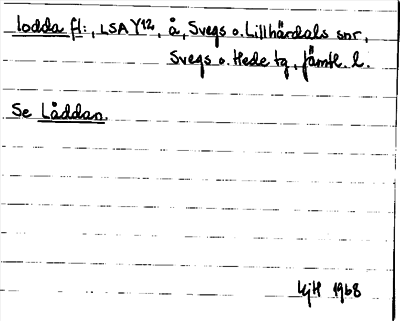 lodda fl:, LSA Y12, å, Svegs o. Lillhärdals snr,
Svegs o. Hede tg, Jämtl. l.
Se Låddan.
KjH 1968